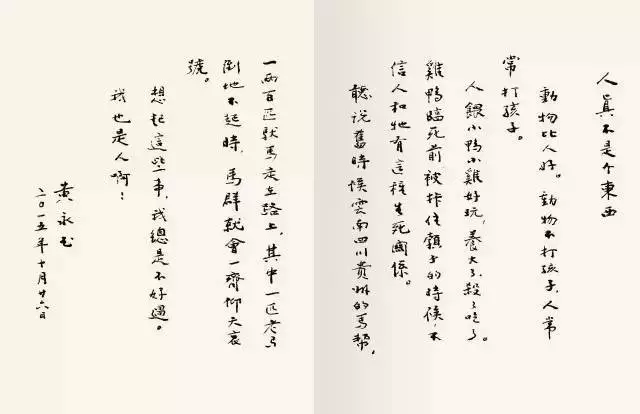 人真不是个東西
動物比人好。動物不打孩子,人常
常打孩子。
人餵小鴨小雞好玩,養大了,殺了吃了。
雞鴨臨死前被拃住頸子的時候,不
信人和牠有這種生死關係。
聽說舊時候雲南四川貴州的馬幫,
一兩百匹馱馬走在路上,其中一匹老馬
倒地不起時,馬群就會一齊仰天哀
號。
想起這些事,我總是不好過。
我也是人啊!
黄永玉
二〇一五年十月廿六日